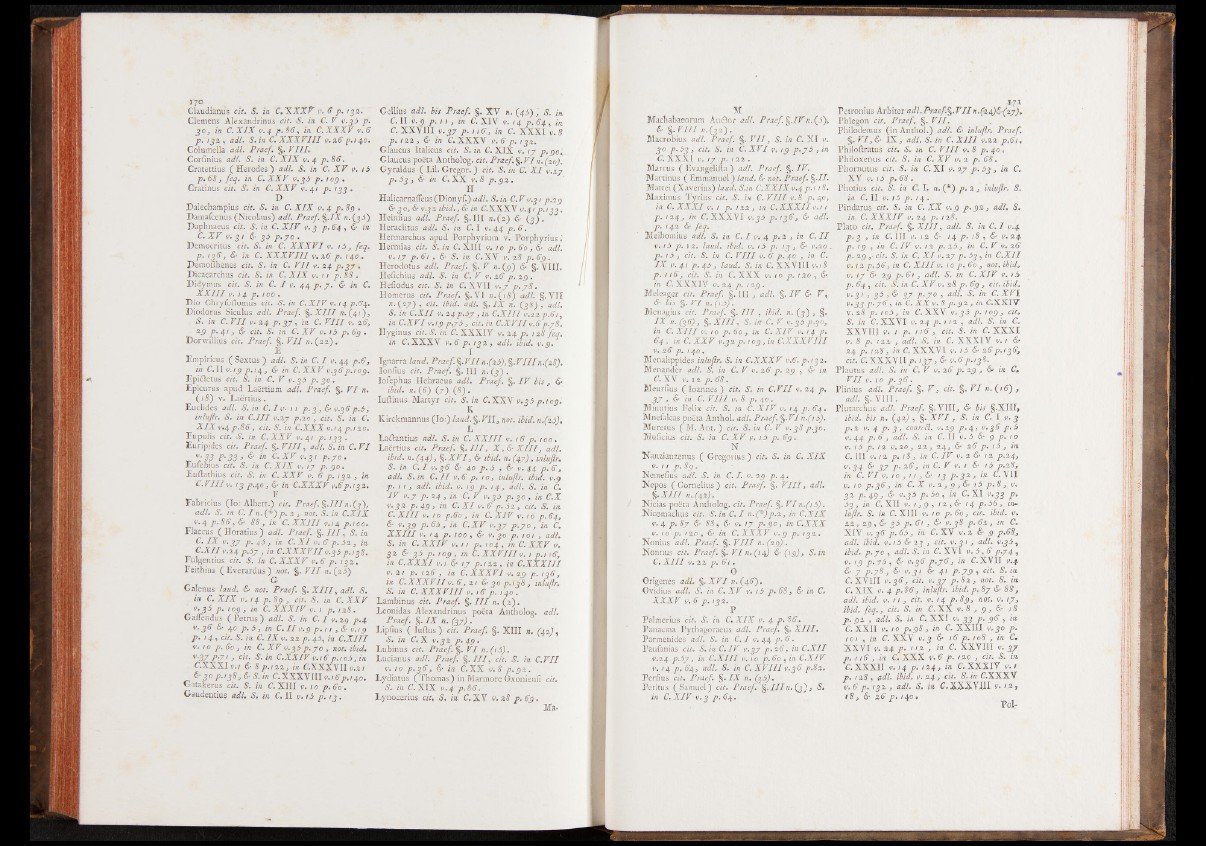 170
Claudianus cit. S. in C. XXXV v. 6 p. 132.
Clemens Alexandrinus cit. S. in C. V v.35 p.
30, in C. XIX v.4 p.86, in C. XXXV v.6
p.132, adl. S. in C. XXXVIII v.26 p.140.
Columella adl. Praef. §. VIII.
Corsinius adl. S. in C. XIX v. 4 p. 86.
Cratettius ( Herodes ) adl. S. in C. XV v. 15
p.68, seq. in C. XXV v.35 p.109.
Cratinus cit. S. in C. XXV v.41 p. 133.
D
Dalechampius cit. S. in C. XIX v. 4 p. 89.
Damascenus (Nicolaus) adl. Praef. §.IX n.(35)
Daphitatus cit. S. in C. XIV v.3 p.64, & in
C. XV v. 31 & 35 p.70.
Democritus cit. S. in C. XXXVI v. 15, seq.
p.136, & in C. XXXVIII v. 26 p. 140.
Demosthenes cit. S. in C. VII v. 24 p. 37.
Dicaearchus cit. S. in C. XIX v. 11 p. 88.
Didymus cit. S. in C. I v. 44 p. 7. & in C.
XXIII v. 14 p. 100.
Dio Chrysostomus cit. S. in C. XIV v. 14 p.64.
Diodorus Siculus adl. Praef. §. XIII n.(41),
S. in C. VII v. 24 p.37, in C. VIII v. 26,
29 p.41, & cit. S. in C. XV v.15 p.69.
Dorwillius cit. Praef. §. VII n.(22).
E
Empiricus ( Sextus ) adl. S. in C. I v.44 p.6,
in C.II v.19 p.14, & in C. XXV v.36 p.109.
Epictetus cit. S. in C. V v.35 p. 30.
Epicurus apud Laërtium adl. Praef. §. VI n.
(18) v. Laërtius.
Euclides adl. S. in C. I v. 11 p.3, & v.36 p.5,
inlustr. S. in C. III v.27 p.20, cit. S. in C.
XIX v.4 p.86, cit. S. in C.XXX v.14 p.120.
Eupolis cit. S. in C. XXV v.41 p. 133.
Euripides cit. Praef. §. VIII, adl. S. in C. VI
v. 33 p. 33, & in C. XV v. 31 p. 70.
Eusebius cit. S. in C. XIX v. 17 p. 90.
Eustathius cit. S. in C. XXV v. 6 p. 132, in
C. VIII v. 13 p.40, & in C.XXXV v.6 p.132.
F
Fabricius (Io: Albert.) cit. Praef. §. III n.(3),
adl. S. in C. I n.(*) p. 2, not. S. in C.XIX
v. 4 p.86, & 88, in C. XXIII v.14 p.100.
Flaccus ( Horatius ) adl. Praef. §. III, S. in
C. IX v.37 p. 45, in C. XI v. 6 p. 52, in
C.XII v.24 p.57, in C.XXXVII v.35 p.138.
Fulgentius cit. S. in C. XXXV v. 6 p. 132.
Feithius ( Everardus ) not. §. VII n.(25)
G
Galenus laud. & not. Praef. §. XIII, adl. S.
in C. XIX v. 14 p. 89, cit. S. in C. XXV
v. 35 p. 109, in C. XXXIV v. 1 p. 128.
Gassendus ( Petrus ) adl. S. in C. I v.29 p.4
v. 36 & 40 p. 5, in C. II v.9 p.11, & v.19
p. 14, cit. S. in C. IX v. 22 p.45, in C.XIII
v. 10 p.60, in C. XV v.35 p.70, not. ibid.
v.37 p.71, cit. S. in C.XXIV v.16 p.105, in
C.XXXI v.1 & 8 p.122, in C.XXXVII v.21
& 30 p.138, & S. in C.XXXVIII v.16 p.140.
Gatakerus cit. S. in C. XIII v. 10 p. 60.
Gaudentius adl. S. in C. II v. 15 p. 13.
Gellius adl. bis Praef. §. XV n. (45), S. in
C. II v.9 p. 11, in C. XIV v. 14 p.64, in
C. XXVIII v.37 p.116, in C. XXXI v.8
p. 122, & in C. XXXV v. 6 p. 132.
Glaucus Italicus cit. S. in C. XIX v. 17 p. 90.
Glaucus poëta Antholog. cit. Praef.§.VI n.(20).
Gyraldus ( Lil. Gregor. ) cit. S. in C. XI v.17
p. 53, & in C. XX v. 8 p. 92.
H
Halicarnasseus (Dionys.) adl. S. in C. V v.31 p.29
& 30, & v.32 ibid., & in C.XXXV v.41 p.133.
Heinsius adl. Praef. §. III n.(2) & (3).
Heraclitus adl. S. in C. I v.44 p. 6.
Hermarchus apud Porphyrium v. Porphyrius.
Hermias cit. S. in C. XIII v. 10 p.60, & adl.
v. 17 p.61, & S. in C. XV v. 28 p.69.
Herodotus adl. Praef. §. V n.(9) & §. VIII.
Hesychius adl. S. in C. V v. 26 p. 29.
Hesiodus cit. S. in C. XVII v. 7 p. 78.
Homerus cit. Praef. §. VI n. (18) adl. §. VII
n. (27), cit. ibid. adl. §. IX n. (38), adl.
S. in C.XII v.24 p.57, in C.XIII v.22 p.61,
in C.XVI v.19 p.75, cit. in C.XVII v.6 p.78.
Hyginus cit. S. in C. XXXIV v. 24 p. 128 seq.
in C. XXXV v. 6 p. 132, adl. ibid. v. 9.
I
Ignarra laud. Praef. §.VII n.(25), §.VIII n.(28).
Ionsius cit. Praef. §. III n.(3).
Iosephus Hebraeus adl. Praef. §. IV bis, &
ibid. n. (6) (7) (8).
Iustinus Martyr cit. S. in C. XXV v. 35 p.109.
K
Kirckmannus (Io:) laud. §. VII, not. ibid. n.(25).
L
Lactantius adl. S. in C. XXIII v. 16 p. 100.
Laërtius cit. Praef. §. III, X, & XIII, adl.
ibid. n. (44), §. XVI, & ibid. n.(47), inlustr.
S. in C. I v. 36 & 40 p.5, & v. 44 p.6,
adl. S. in C. II v.6 p. 10, inlustr. ibid. v.9
p. 11, adl. ibid. v. 19 p. 14, adl. S. in C.
IV v.7 p.24, in C. V v.35 p.30, in C.X
v.32 p.49, in C. XI v.6 p.52, cit. S. in
C. XIII v. 10 p.60, in C. XIV v. 10 p. 64,
& v.39 p.65, in C.XV v.37 p.70, in C.
XXIII v. 12 p. 100, & v. 36 p. 101, adl.
S. in C. XXIV v. 11 p. 104, in C. XXV v.
32 & 35 p. 109, in C. XXVIII v. 1 p.116,
in C.XXXI v.1 & 17 p.122, in C.XXXIII
v. 21 p. 126, in C.XXXVI v. 29 p. 136,
in C.XXXVII v. 6, 21 & 30 p.138, inlustr.
S. in C. XXXVIII v. 16 p. 140.
Lambinus cit. Praef. §. III n. (2).
Leonidas Alexandrinus poëta Antholog. adl.
Praef. §. IX n. (37).
Lipsius ( Iustus ) cit. Praef. §. XIII n. (42),
S. in C. X v.32 p.49.
Lubinus cit. Praef. §. VI n. (15).
Lucianus adl. Praef. §. III, cit. S. in C.VII
v. 10 p.36, & in C. XX v. 8 p. 92.
Lydiatus ( Thomas ) in Marmore Oxoniensi cit.
S. in C. XIX v. 4 p.86.
Lynocerius cit. S. in C.XV v. 28 p. 69.
Ma-
171
M
Machabaeorum Auctor adl. Praef. §. IV n.(5),
& §. VIII v.(32).
Macrobius adl. Praef. §. VII, S. in C. XI v.
30 p. 53, cit. S. in C. XVI v.19 p.75, in
C. XXXI v. 17 p. 122.
Marcus ( Evangelista ) adl. Praef. §. IV.
Martinus ( Emmanuel ) laud. & not. Praef. §.II.
Mattei (Xaverius) laud. S.in C.XXIX v.4 p.118.
Maximus Tyrius cit. S. in C. VIII v.8 p. 40,
in C. XXXI v. 1 p. 122, in C.XXXII v.11
p. 124, in C. XXXVI v. 35 p.136, & adl.
p. 142 & seq.
Meibomius adl. S. in C. I v. 4 p.2, in C. II
v.15 p. 12, laud. ibid. v. 15 p. 13, & v.20.
p.15, cit. S. in C. VIII v.6 p.40, in C.
IX v.41 p.45, laud. S. in C. XXVIII v.18
p.116, cit. S. in C.XXX v.10 p.120, &
in C. XXXIV v. 24 p. 129.
Meleager cit. Praef. §. III, adl. §. IV & V,
& bis §. VI n. (15).
Menagius cit. Praef. §. III, ibid. n. (3), §.
IX n.(36), §. XIII, S. in C. V v.35 p.30,
in C. XIII v. 10 p. 60, in C. XIV v. 14 p.
64, in C. XXV v.32 p.109, in C.XXXVIII
v. 26 p. 140.
Menalippides inlustr. S. in C.XXXV v.6 p.132.
Menander adl. S. in C. V v.26 p.29, & in
C. XV v. 12 p.68.
Meursius ( Ioannes ) cit. S. in C.VII v. 24 p.
37, & in C. VIII v. 8 p. 40.
Minutius Felix cit. S. in C. XIV v. 14 p. 64.
Mnesalcas poëta Anthol. adl. Praef. §.VI n.(15).
Muretus ( M. Ant. ) cit. S. in C. V v.38 p.30.
Musicius cit. S. in C. XV v. 15 p. 69.
N
Nanzianzenus ( Gregorius ) cit. S. in C. XIX
v. 11 p. 89.
Nemesius adl. S. in C. I. v. 29 p. 4.
Nepos ( Cornelius ) cit. Praef. §. VIII, adl.
§. XIII n.(42).
Nicias poëta Antholog. cit. Praef. §. VI n.(15).
Nicomachus cit. S. in C. I n.(*) p.2, in C.XIX
v. 4 p. 87 & 88, & v. 17 p. 90, in C.XXX
v. 10 p. 120, & in C. XXXV v. 9 p. 132.
Nonius adl. Praef. §. VIII n. (29).
Nonnus cit. Praef. §. VI n.(14) & (19), S. in
C. XIII v. 22 p. 61.
O
Origenes adl. §. XVI n. (46).
Ovidius adl. S. in C. XV v. 15 p.68, & in C.
XXXV v. 6 p. 132.
P
Palmerius cit. S. in C. XIX v. 4 p. 86.
Panaceus Pythagoraeus adl. Praef. §. XIII.
Parmenides adl. S. in C. I v.44 p. 6.
Pausanias cit. S. in C. IV v.37 p.26, in C.XII
v.24 p.57, in C.XIII v. 10 p.60, in C.XIV
v. 14 p. 64, adl. S. in C. XVIII v.36 p.82.
Persius cit. Praef. §. IX n. (35).
Petitus ( Samuel ) cit. Praef. §. III n.(3), S.
in C. XIV v. 3 p. 64.
Petronius Arbiter adl. Praef.§.VII n.(24)&(27).
Phlegon cit. Praef. §. VII.
Philodemus (in Anthol.) adl. & inlustr. Praef.
§. VI, & IX, adl. S. in C. XIII v.22 p.61.
Philostratus cit. S. in C. VIII v. 8 p. 40.
Philoxenus cit. S. in C. XV v. 2 p. 68.
Phornutus cit. S. in C. XI v. 27 p. 53, in C.
XV v. 15 p. 68.
Photius cit. S. in C. I. n. (*) p. 2, inlustr. S.
in C. II v. 15 p. 14.
Pindarus cit. S. in C. XX v. 9 p. 92, adl. S.
in C. XXXIV v. 24 p. 128.
Plato cit. Praef. §. XIII, adl. S. in C. I v.4
p. 3, in C. III v. 12 & 14 p. 18, & v. 24
p. 19, in C. IV v. 12 p. 25, in C. V v. 26
p. 29, cit. S. in C. XI v.27 p.53, in C.XII
v.12 p.56, in C. XIII v. 10 p. 60, not. ibid.
v. 17 & 29 p.61, adl. S. in C. XIV v. 15
p.64, cit. S. in C. XV v. 28 p.69, cit. ibid.
v. 31, 35, & 37 p. 70, adl. S. in C. XVI
v.33 p.76, in C. XX v. 8 p. 92, in C.XXIV
v. 28 p. 105, in C. XXV v. 35 p. 109, cit.
S. in C.XXVI v. 24 p. 112, adl. S. in C.
XXVIII v. 1 p. 116, cit. S. in C. XXXI
v. 8 p. 122, adl. S. in C. XXXIV v.1 &
24 p.128, in C. XXXVI v. 15 & 26 p.136,
cit. C. XXXVII p.137, & v.6 p.138.
Plautus adl. S. in C. V v. 26 p. 29, & in C.
VII v. 10 p. 36.
Plinius adl. Praef. §. V, cit. §. VI n. (16),
adl. §. VIII.
Plutarchus adl. Praef. §. VIII, & bis §.XIII,
ibid. bis n. (42), §. XVI, S. in C. I v. 3
p. 2 v. 4 p. 3, correct. v. 29 p.4, v. 36 p.5
v. 44 p. 6, adl. S. in C. II v. 5 & 9 p. 10
v. 15 p. 12, v.20, 22, 24, & 26 p. 15, in
C. III v. 12 p. 18, in C. IV v. 2 & 12 p.24,
v.34 & 37 p. 26, in C. V v.1 & 15 p.28,
in C. VI v. 10, 11, & 13 p.32, in C. VII
v. 10 p.36, in C. X v.2, 9, & 15 p.8, v.
32 p. 49, & v.35 p. 50, in C. XI v.33 p.
53, in C. XII v. 1, 9, 12, & 14 p.56, in-
lustr. S. in C. XIII v. 10 p. 60, cit. ibid. v.
22, 29, & 35 p. 61, & v. 38 p. 62, in C.
XIV v.36 p.65, in C. XV v.2 & 9 p.68,
adl. ibid. v.15 & 23, cit. v.31, adl. v.35,
ibid. p.70, adl. S. in C. XVI v. 5, 6 p.74,
v. 19 p.75, & v.36 p.76, in C.XVII v.4
& 7 p.78, & v.31 & 41 p.79, cit. S. in
C. XVIII v.36, cit. v.37 p.82, not. S. in
C. XIX v. 4 p.86, inlustr. ibid. p.87 & 88,
adl. ibid. v. 11, cit. v. 14 p.89, not. v. 17,
ibid. seq., cit. S. in C. XX v. 8, 9, & 18
p. 92, adl. S. in C. XXI v. 33 p. 96, in
C. XXII v. 10 p.98, in C. XXIII v.30 p.
101, in C. XXV v.3 & 16 p.108, in C.
XXVI v. 24 p. 112, in C. XXVIII v. 37
p. 116, in C. XXX v.6 p. 120, cit. S. in
C. XXXII v.14 p.124, in C. XXXIV v.1
p. 128, adl. ibid. v.24, cit. S. in C.XXXV
v.6 p. 132, adl. S. in C. XXXVIII v. 12,
18, & 26 p. 140.
Pol-